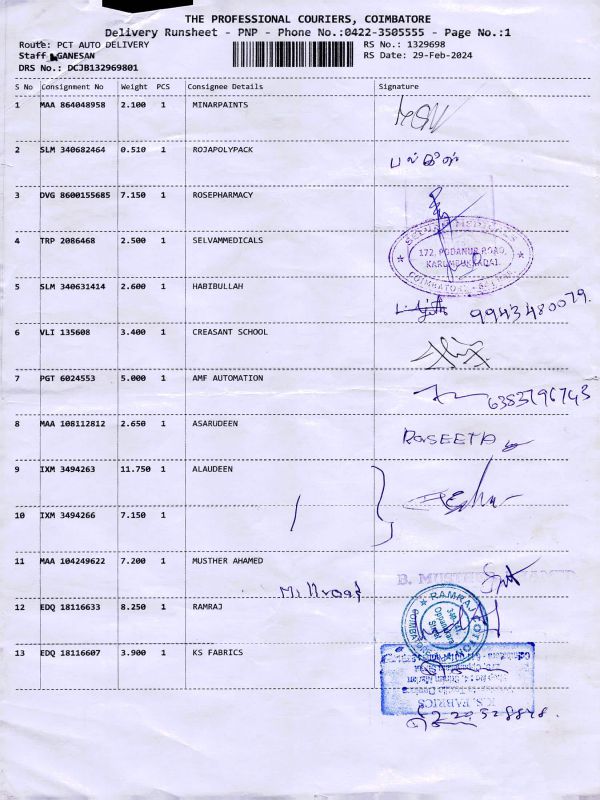 THE PROFESSIONAL COURIERS, COIMBATORE
Delivery Runsheet - PNP - Phone No.:0422-3505555 - Page No.:1
Route: PCT AUTO DELIVERY RS No.: 1329698
Staff GANESAN RS Date: 29-Feb-2024
DRS No.: DCJB132969801
S No Consignment No Weight PCS Consignee Details Signature
1 MAA 864048958 2.100 1 MINARPAINTS
2 SLM 340682464 0.510 1 ROJAPOLYPACK
3 DVG 8600155685 7.150 1 ROSEPHARMACY
4 TRP 2086468 2.500 1 SELVAMMEDICALS
172, PODANUR ROAD,
KARUMBUKKADAI,
5 SLM 340631414 2.600 1 HABIBULLAH
9943480079.
6 VLI 135608 3.400 1 CREASANT SCHOOL
7 PGT 6024553 5.000 1 AMF AUTOMATION 6383796743
8 MAA 108112812 2.650 1 ASARUDEEN RASEETA
9 IXM 3494263 11.750 1 ALAUDEEN
10 IXM 3494266 7.150 1
11 MAA 104249622 7.200 1 MUSTHER AHAMED
Millroad
12 EDQ 18116633 8.250 1 RAMRAJ
RAMRAJ COTTON
13 EDQ 18116607 3.900 1 KS FABRICS
K.S. FABRICS